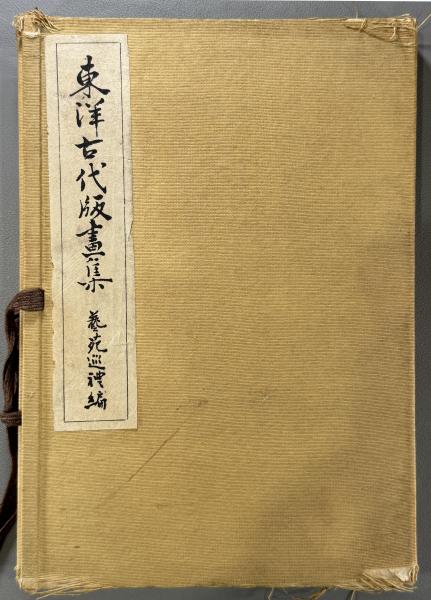 東洋古代版畫集
藝苑巡禮編